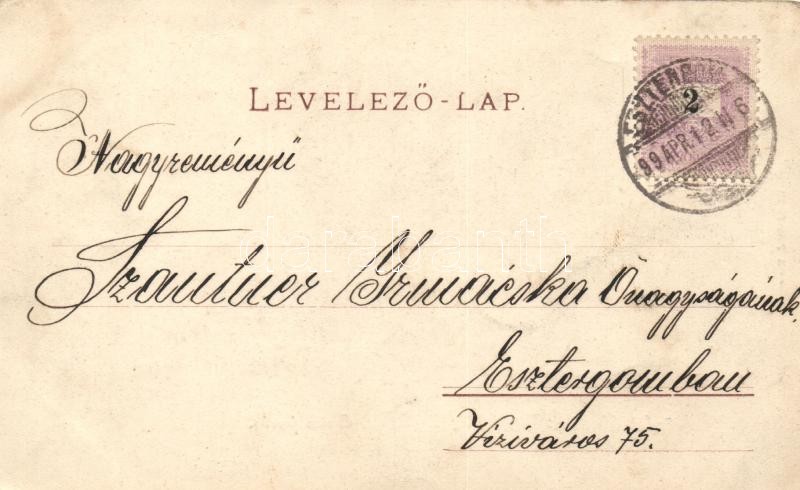 LEVELEZŐ-LAP.
2
ESZTERGOM
99 APR. 12 N 6
Nagyreményű
Szautner Irmácska Őnagyságának,
Esztergomban
Víziváros 75.
darabanth